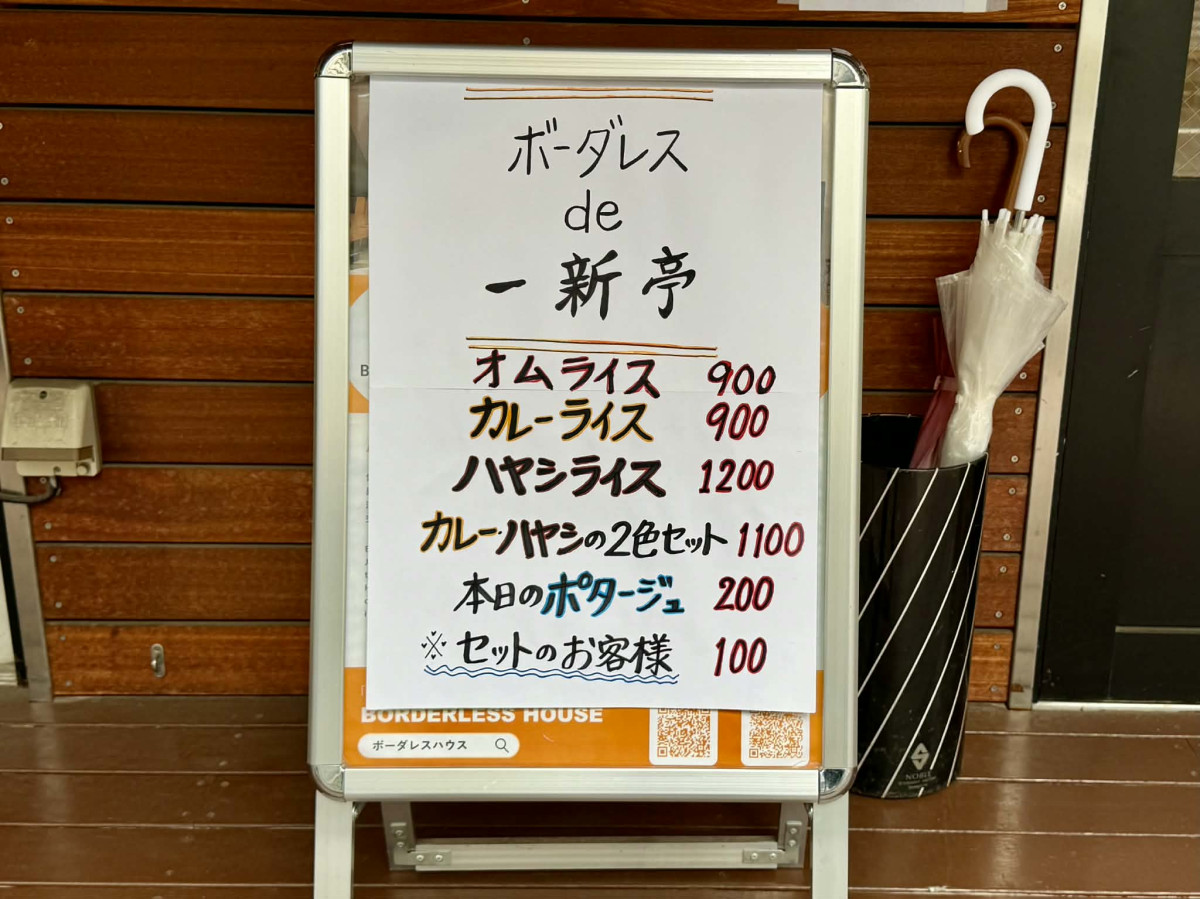 ボーダレス
de
一新亭
オムライス 900
カレーライス 900
ハヤシライス 1200
カレー・ハヤシの2色セット 1100
本日のポタージュ 200
※セットのお客様 100
BORDERLESS HOUSE
ボーダレスハウス
NOBLE